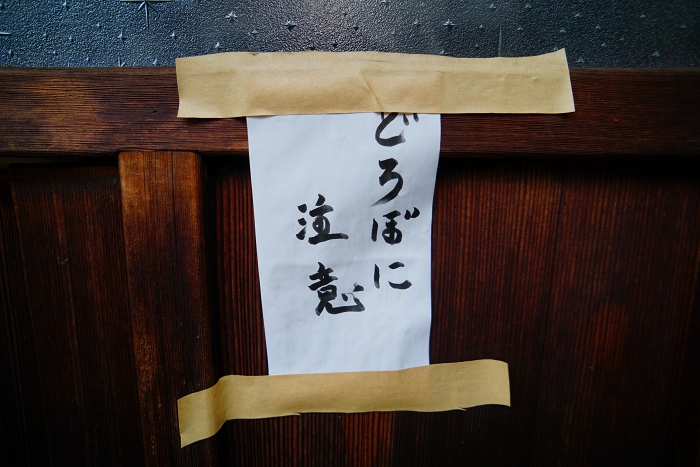 どろぼに
注意